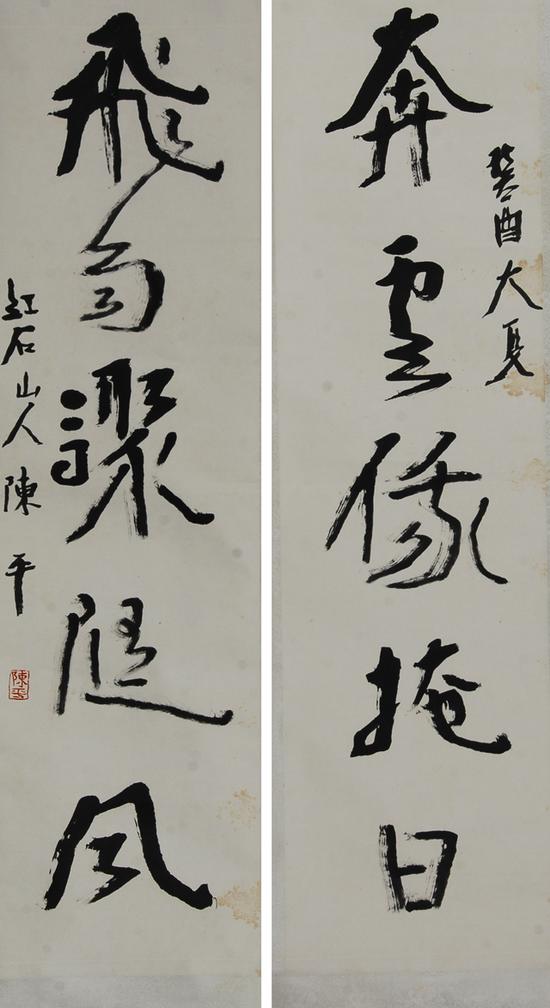 奔雲俄掩日
癸酉大夏
飛雨驟隨風
紅石山人陳平
陳平